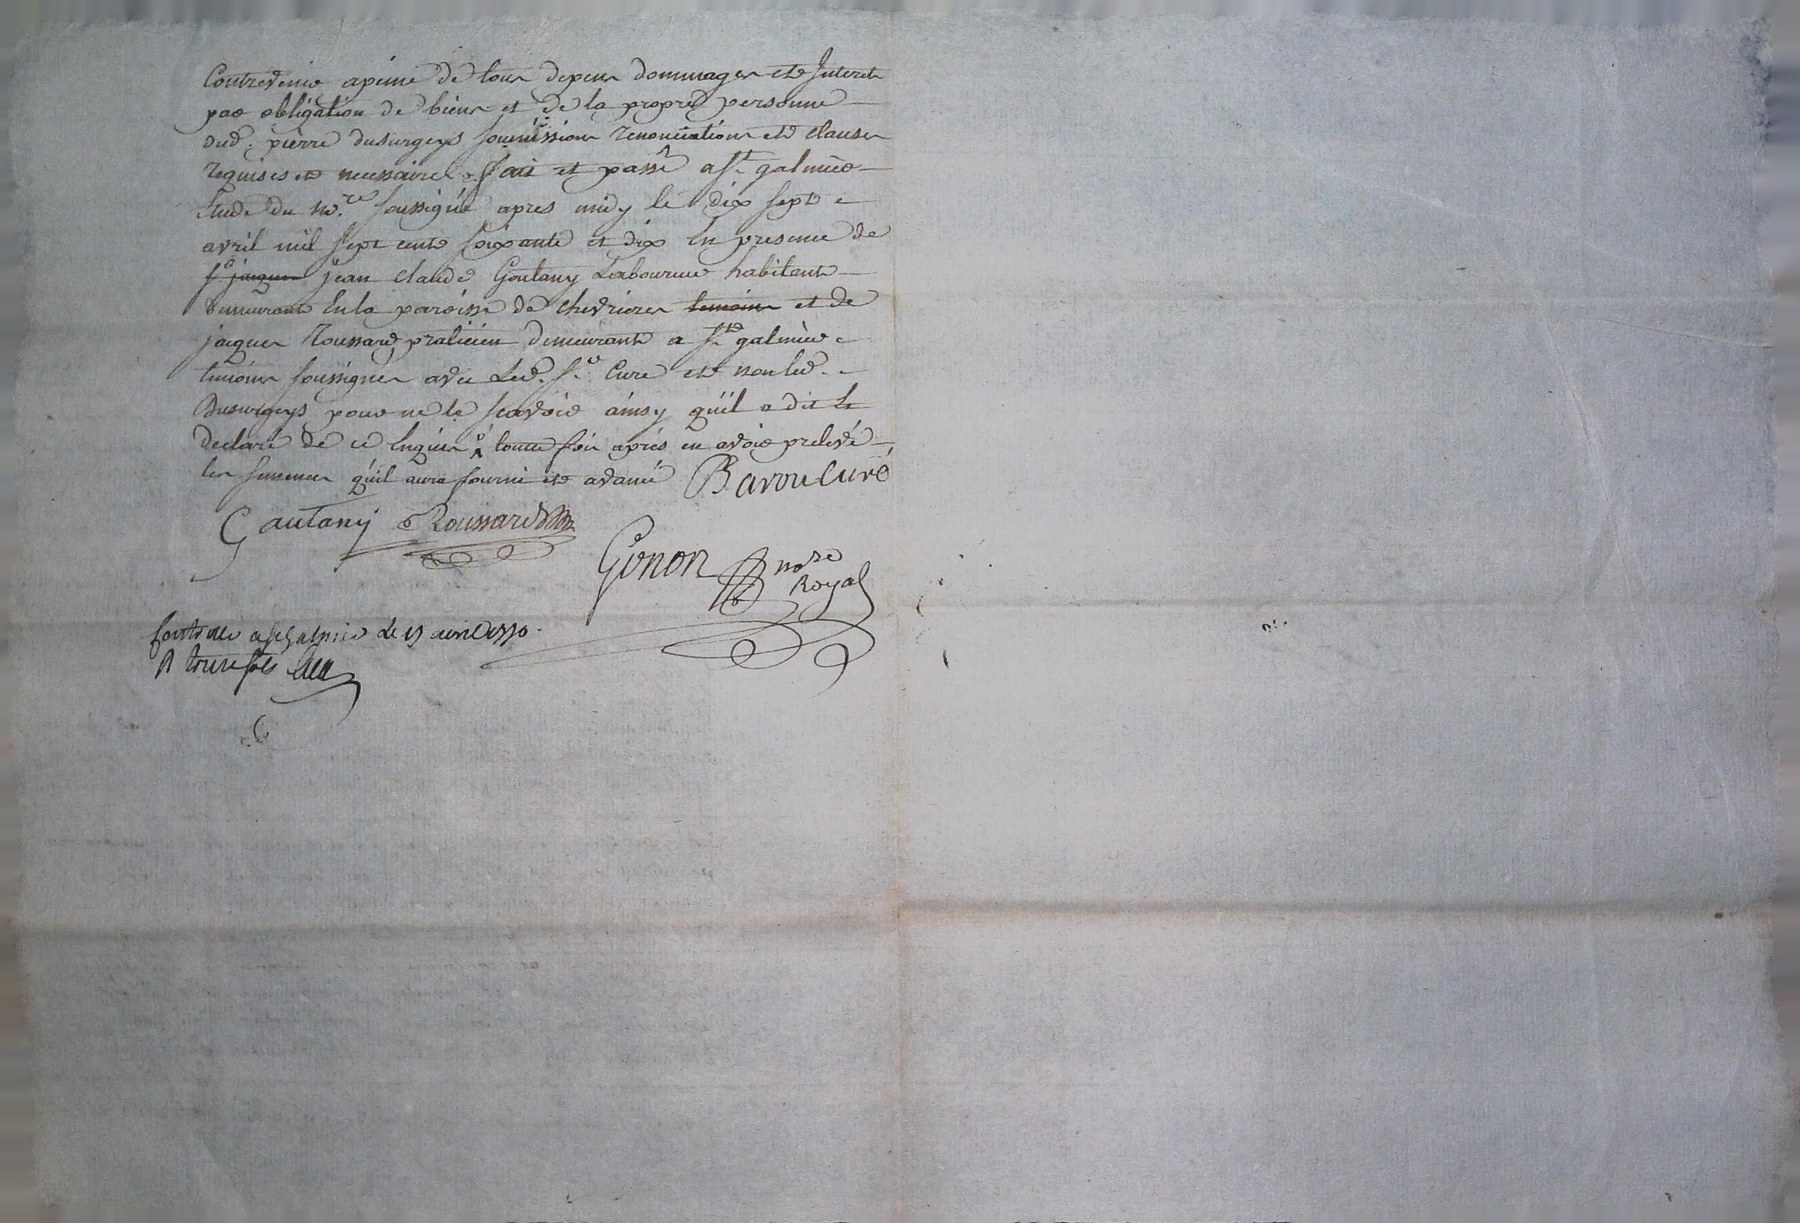 Contrevenir apeine de tous depens dommages et Interets
par obligation de biens et de la propre personne
dud. pierre dusurgeys soumissions renonciations et clauses
requises et necessaires fait et passé a St. galmier
Etude du nore. soussigné apres midy le dix sept
avril mil sept cents soixante et dix En presence de
jean claude Goutany Laboureur habitant
demeurant En la paroisse de chevrieres temoins et de
jacques Roussard praticien demeurant a St galmier
temoins soussignés avec Led. Sr. Curé et non led.
Dusurgeys pour ne le scavoir ainsy qu'il a dit
declaré de ce Enquis toutte fois aprés en avoir prelevé
les semences qu'il aura fourni et avancé Barou Curé
Gautany Roussard
Gonon nore
Royal
Controlé a St Galmier le avril 1770.
R treize sols